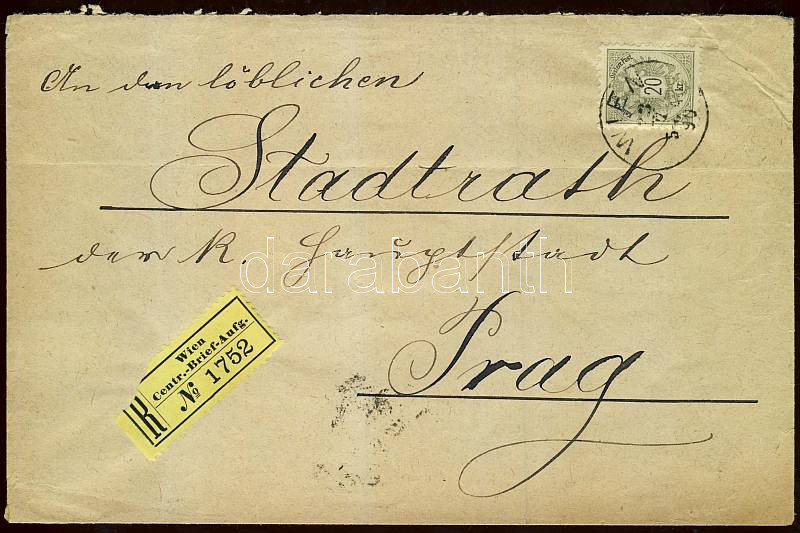 An den löblichen
Stadtrath
der k. Hauptstadt
Prag
Wien
Centr.-Brief-Aufg.
R № 1752
20
kr.
WIEN
darabanth